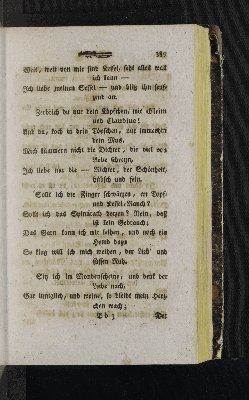 387
Weit, weit von mir sind Kessel, seht alles was
ich kann —
Ich liebe meinen Sessel — und sitz ihn seuf-
zend an.
Zerbrich du nur dein Köpfchen, wie Gleim
und Claudius!
Und du, koch in dein Töpfchen, nur immerhin
dein Mus.
Mich kümmern nicht die Dichter, die viel von
Liebe schreyn,
Ich liebe nur die — Richter, der Schönheit,
hübsch und fein.
Sollt ich die Finger schwärzen, an Topf-
und Kessel-Rauch?
Sollt ich das Spinnrath herzen? Nein, das
ist kein Gebrauch;
Das Garn kann ich mir leihen, und noch ein
Hemd dazu
So klug will ich mich weihen, der Lieb' und
süssen Ruh.
Sitz ich im Mondenscheine, und denk der
Liebe nach,
Gar inniglich, und weine, so bleibt mein Herz-
chen wach;
B b 3
Der